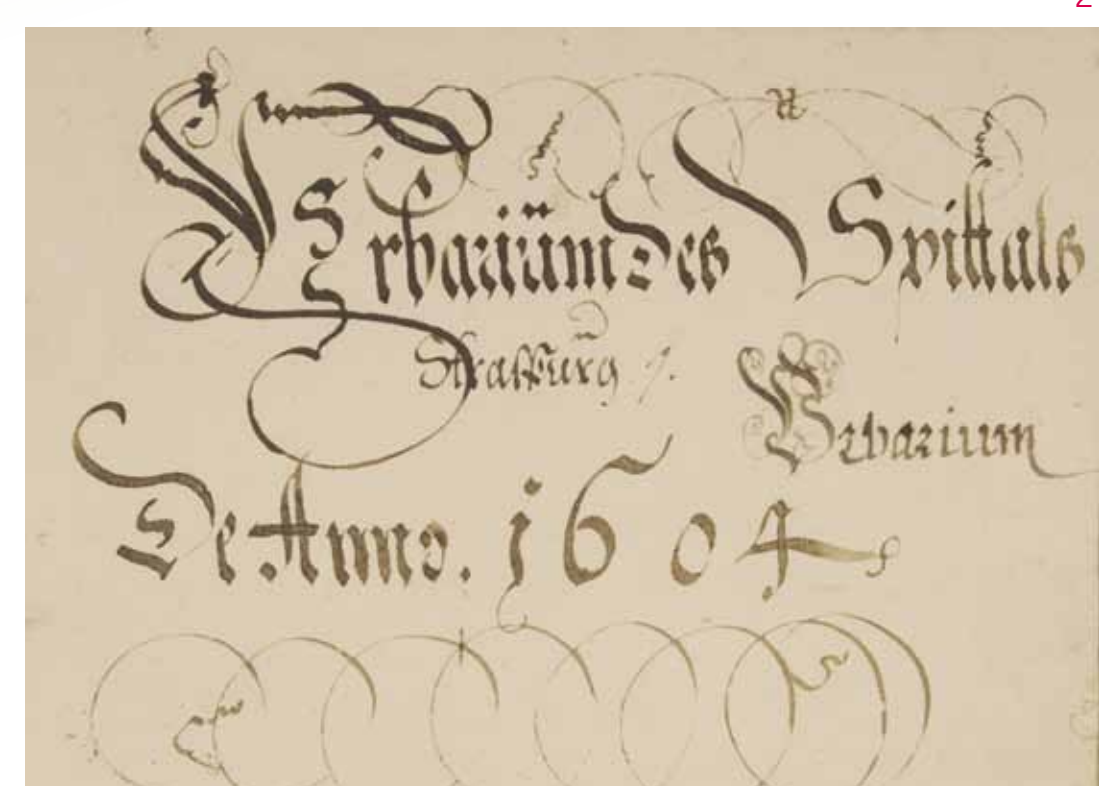 Vrbarium des Spittals
Strasburg
Vrbarium
De Anno. 1604